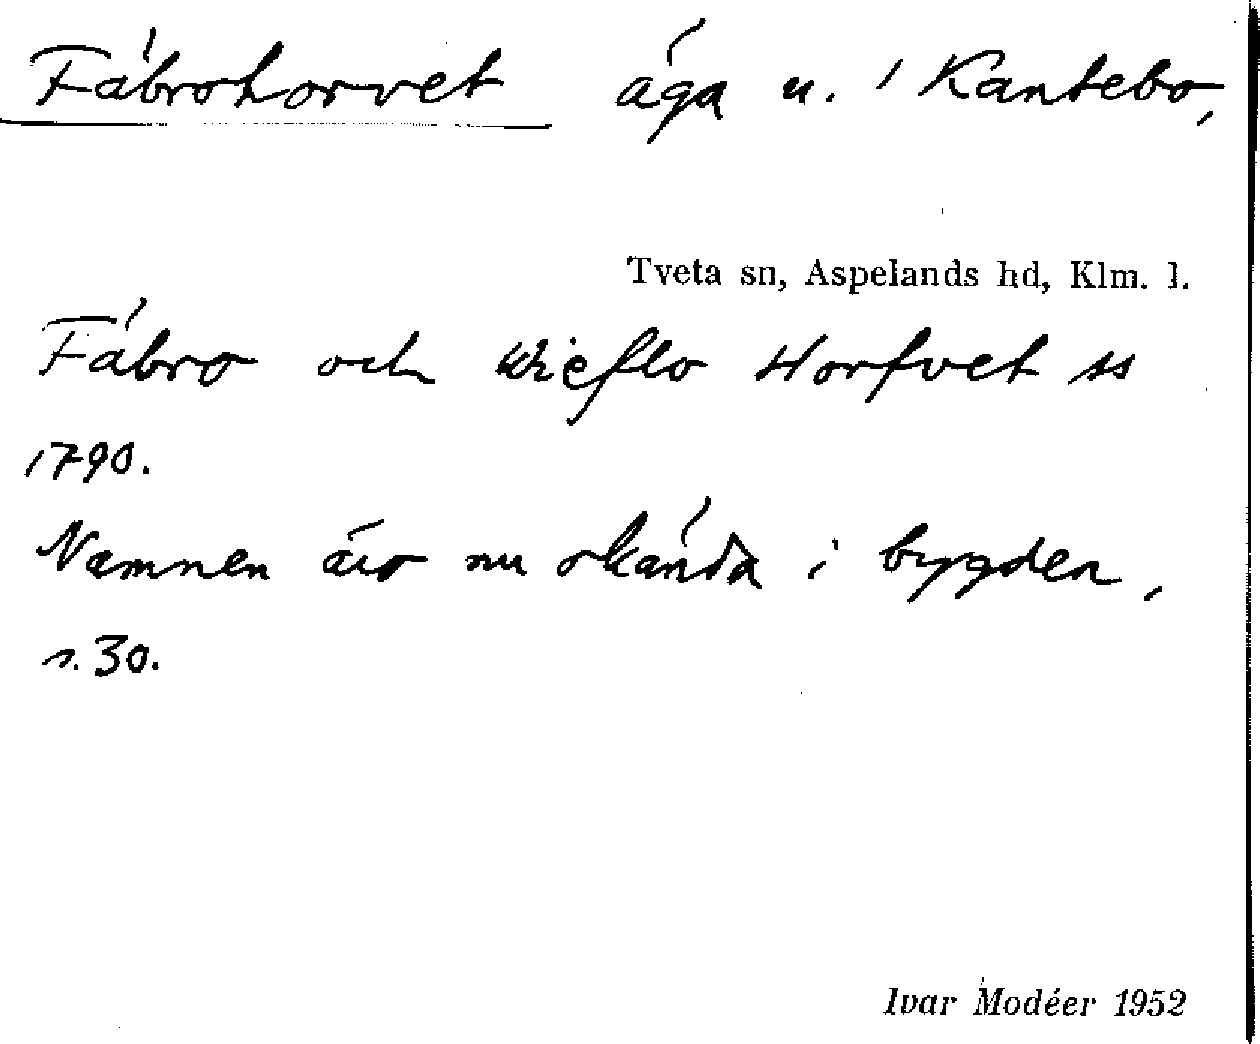 Fåbrohorvet äga u. / Kantebo,
Tveta sn, Aspelands hd, Klm. l.
Fåbro och Kieflo Horfvet ss
1790.
Namnen äro nu okända i bygden,
s. 30.
Ivar Modéer 1952